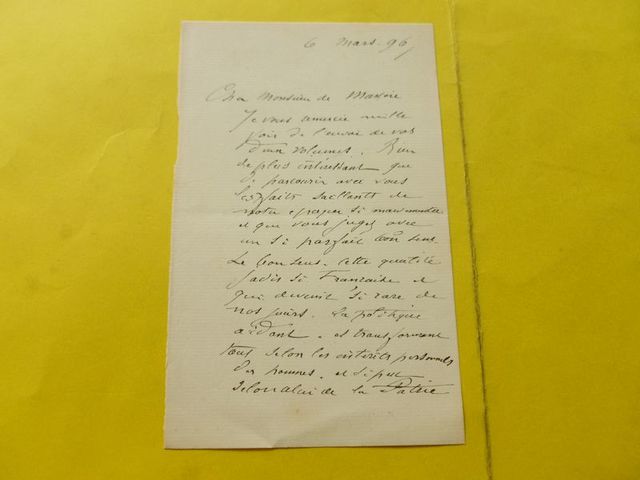 6 Mars. 96
Cher Monsieur de
Je vous remercie mille
fois de l'envoi de vos
deux volumes. Rien
de plus intéressant que
de parcourir avec vous
les faits saillants de
notre époque si
et que vous jugez avec
un si parfait bon sens
Le bon sens. cette qualité
jadis si Française et
qui devient si rare de
nos jours. La politique
aidant. et transformant
tout selon les intérêts personnels
des hommes. et si peu
selon celui de la Patrie